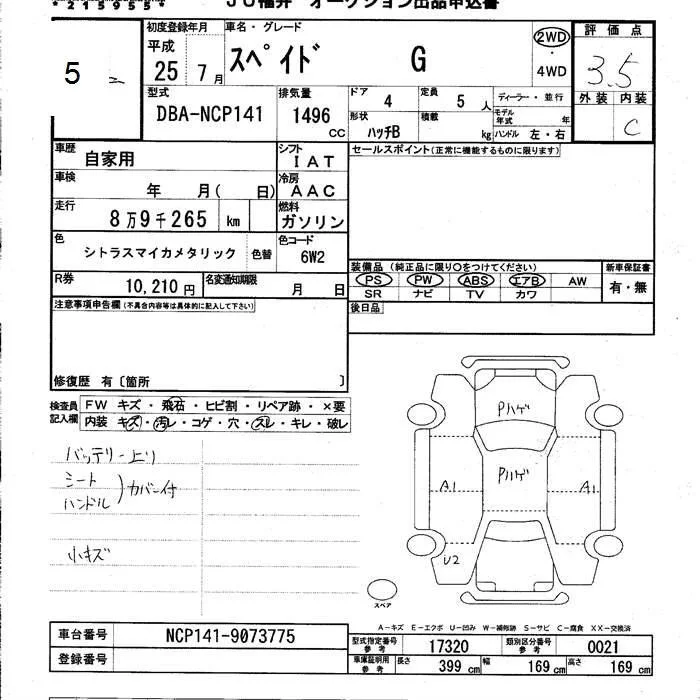 *215955*
JU福井 オークション出品申込書
5 ニ
初度登録年月
平成
25年 7月
車名・グレード
スペイド G
2WD
・
4WD
評価点
3.5
外装 内装
C
型式
DBA-NCP141
排気量
1496
CC
ドア
4
定員
5 人
形状
ハッチB
積載
kg
ディーラー・並行
モデル年式 年
ハンドル 左・右
車歴
自家用
シフト
IAT
セールスポイント(正常に機能するものに限ります)
車検
年 月( 日)
冷房
AAC
走行
8万9千265 km
燃料
ガソリン
色
シトラスマイカメタリック
色替
色コード
6W2
装備品 (純正品に限り○をつけてください)
PS PW ABS エアB AW
SR ナビ TV カワ
新車保証書
有・無
R券
10,210円
名変通知期限
月 日
後日品
注意事項申告欄(不具合内容等は具体的に記入して下さい)
修復歴 有〔箇所 〕
検査員記入欄
FW キズ・飛石・ヒビ割・リペア跡・×要
内装 キズ・汚レ・コゲ・穴・スレ・キレ・破レ
バッテリー上り
シート
ハンドル
)カバー付
小キズ
Pハゲ
Pハゲ
A1
A1
U2
スペア
A-キズ E-エクボ U-凹み W-補修跡 S-サビ C-腐食 XX-交換済
車台番号
NCP141-9073775
登録番号
型式指定番号
参考
17320
類別区分番号
参考
0021
車庫証明用
参考
長さ
399 cm
幅
169 cm
高さ
169 cm